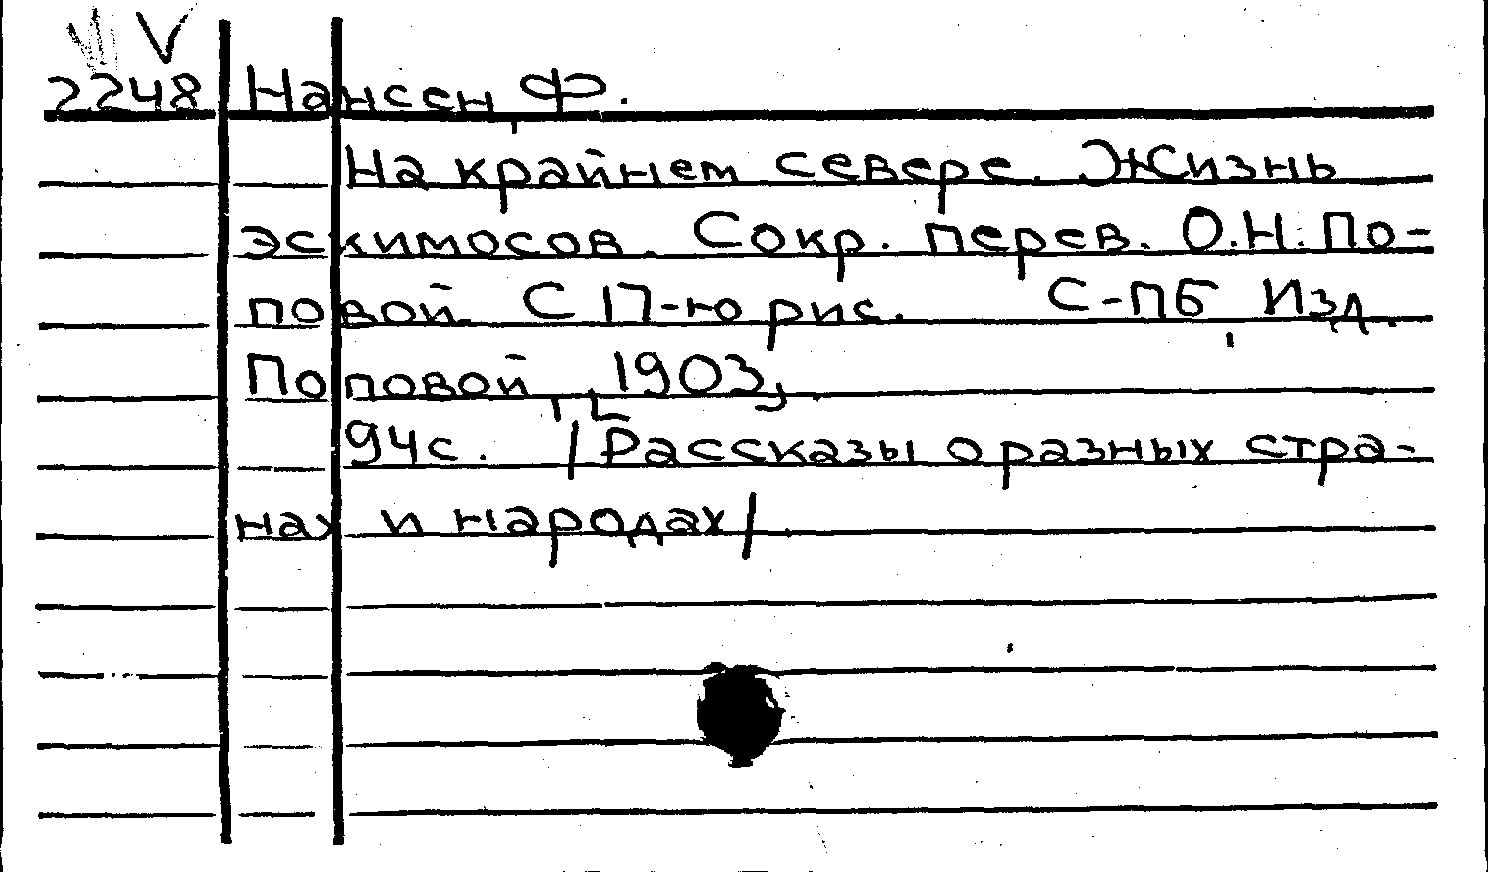 V
2248 Нансен, Ф.
На крайнем севере. Жизнь
эскимосов. Сокр. перев. О.Н. По-
повой. С 17-ю рис. С-ПБ, Изд.
Поповой, [1903],
94с. /Рассказы о разных стра-
нах и народах/